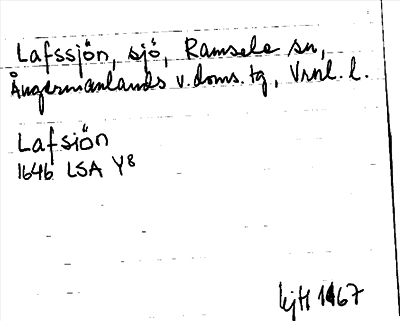 Lafssjön, sjö, Ramsele sn,
Ångermanlands v. doms. tg, Vrnl. l.
Lafsiön
1646 LSA Y8
kjH 1967